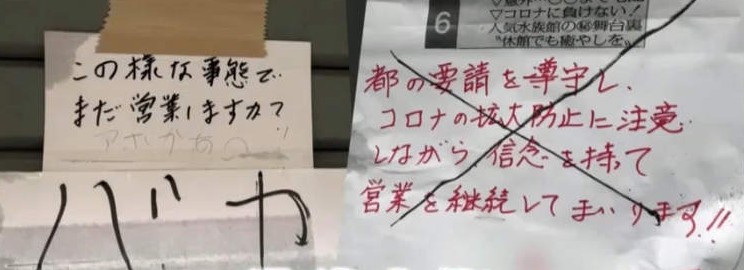 この様な事態で
まだ営業しますか?
アホかぁ〜!!
バカ
6
▽コロナに負けない!
人気水族館の㊙舞台裏
"休館でも癒やしを"
都の要請を遵守し、
コロナの拡大防止に注意
しながら信念を持って
営業を継続してまいります!!